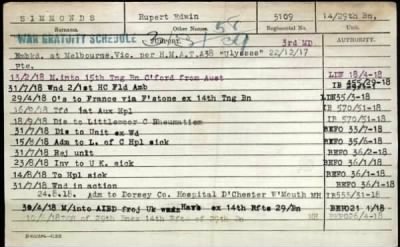 SIMMONDS Rupert Edwin 5109 14/29th Bn,
Surname. Other Names. Regimental No. Unit.
WAR GRATUITY SCHEDULE 3rd MD AUTHORITY.
Embkd. at Melbourne.Vic. per H.M.A.T.A38 "Ulysses" 22/12/17
Pte.
13/2/18 M.into 15th Tng Bn C'ford from Aust LIN 18/4-18
31/7/18 Wnd 2/1st HC Wld Amb
29/4/18 O's to France via F'stone ex 14th Tng Bn IB 35/3-18
16/6/18 Tfd 1st Aux Hpl IB 570/51-18
18/9/18 Dis to Littlemoor C Rheumatism IB 570/51-18
31/7/18 Dis to Unit ex Wd BEFO 33/7-18
15/8/18 Adm to L. of C Hpl sick BEFO 35/3-18
31/7/18 Rej unit BEFO 36/2-18
23/8/18 Inv to U K. sick BEFO 36/1-18
14/8/18 To Hpl sick BEFO 36/1-18
31/7/18 Wnd in action BEFO 36/1-18
24.8.18. Adm to Dorsey Co. Hospital D'Chester W'Mouth MH IB555/31-18
30/4/18 M/into AIBD froj Uk Havre ex 14th Rfts 29/Bn BEFO21 4/18
of 29th Bn ex 14th Rfts of 29th Bn MH BEFO26/4-18